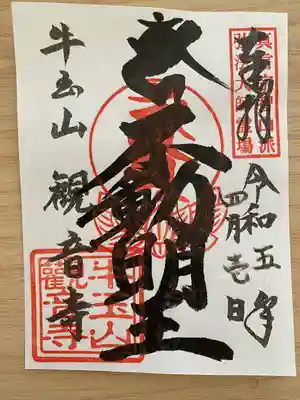 奉拝
令和五年
四月壱日
不動明王
牛玉山 観音寺
牛玉山
觀音寺